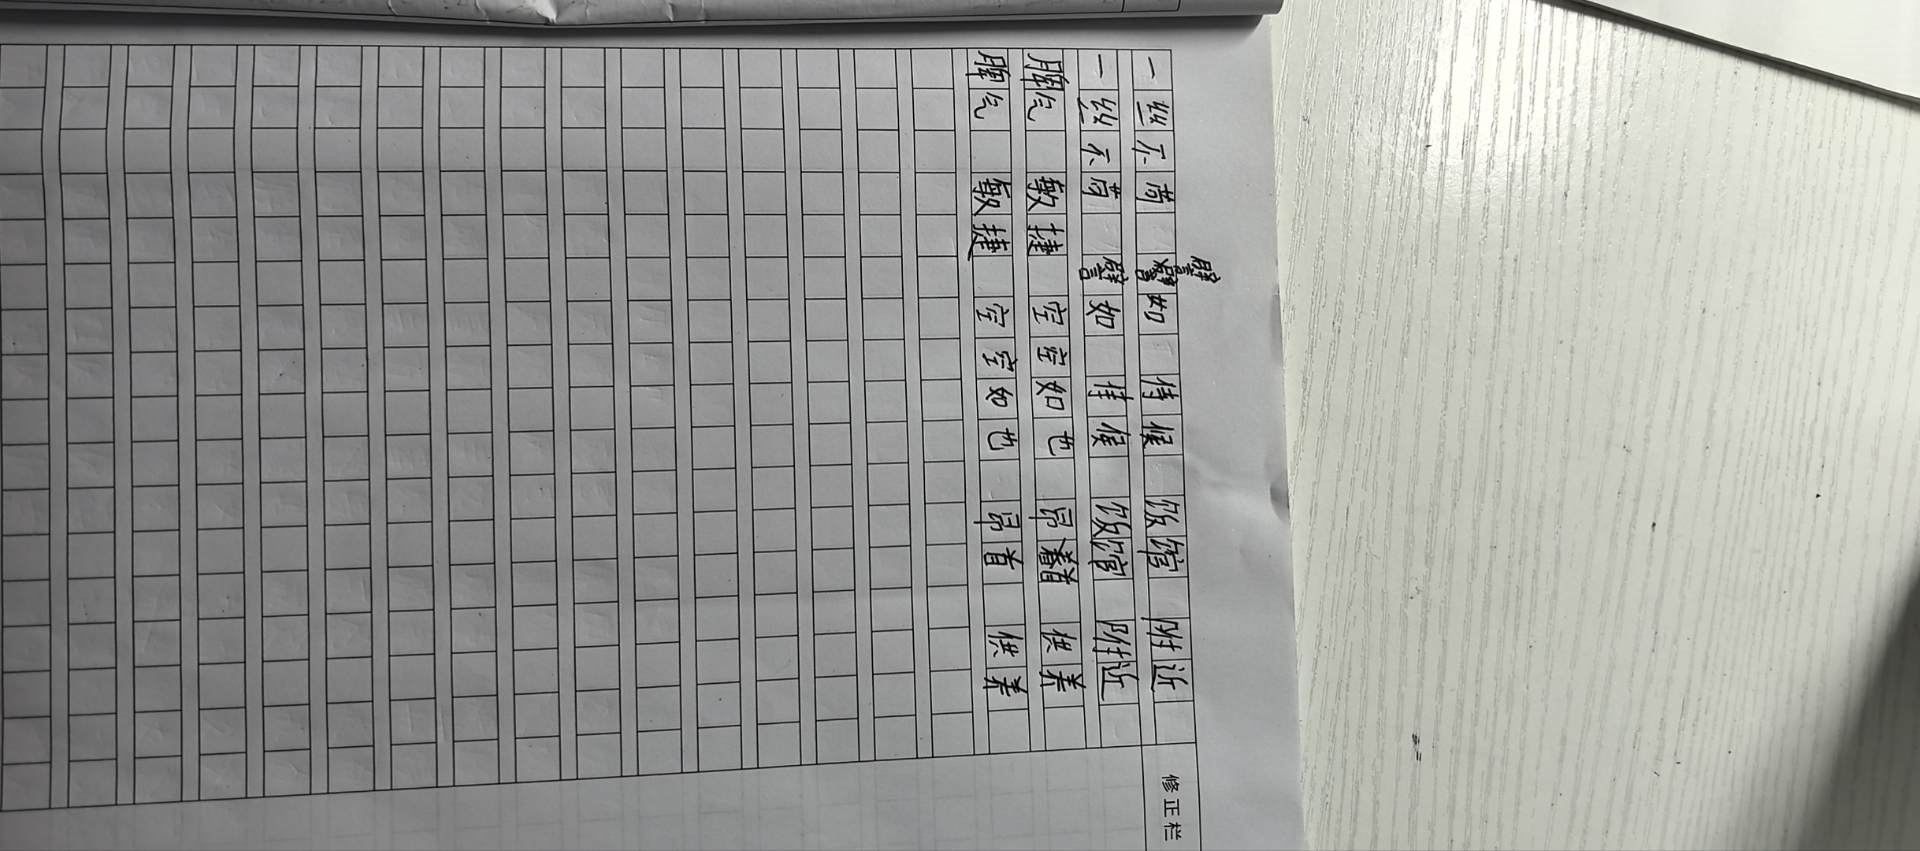 一丝不苟 譬如 侍候 饭馆 附近
一丝不苟 譬如 侍候 饭馆 附近
脾气 敏捷 空空如也 昂首 供养
脾气 敏捷 空空如也 昂首 供养
修正栏